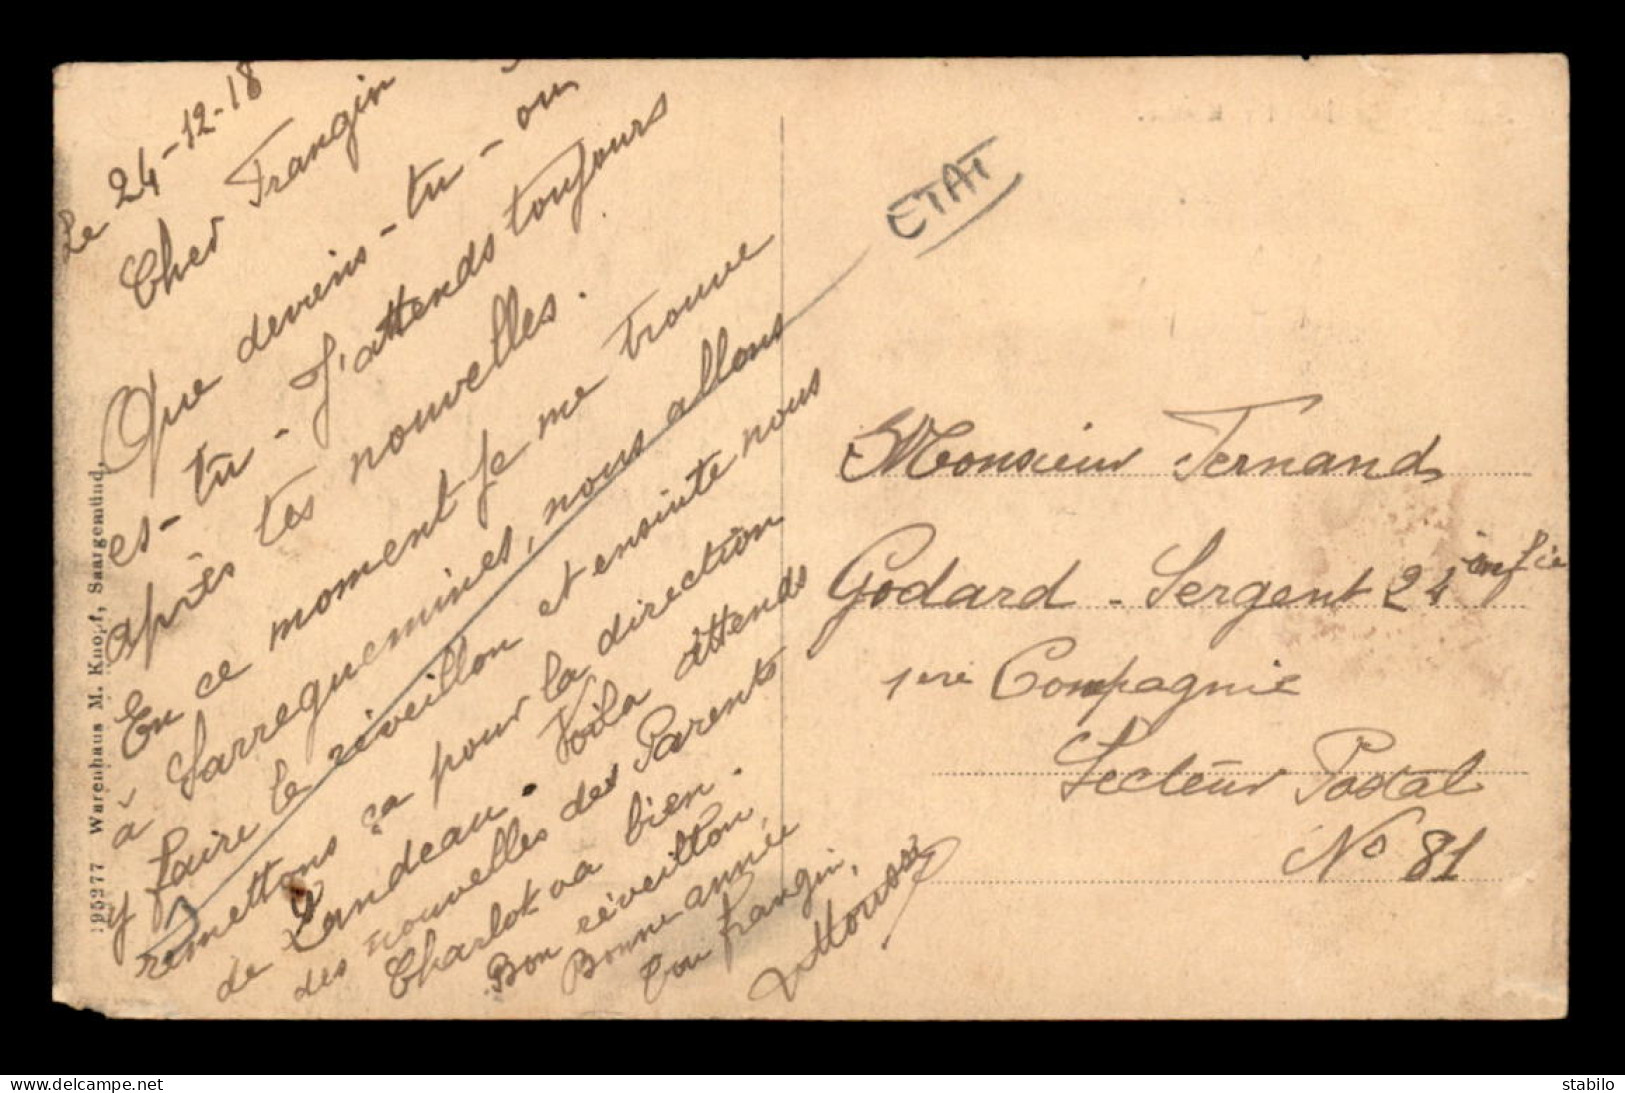 Le 24-12-18
Cher Frangin
Que deviens-tu - où
es-tu - J'attends toujours
après tes nouvelles.
En ce moment je me trouve
à Sarreguemines, nous allons
y faire le réveillon et ensuite nous
remettons ça pour la direction
de Landeau. Voila attends
des nouvelles des Parents
Charlot va bien.
Bon réveillon,
Bonne année
Ton frangin,
ETAT
Monsieur Fernand
Godard - Sergent 24 infie
1ere Compagnie
Secteur Postal
No 81
195277 Warenhaus M. Knopf, Saargemünd.
delcampe.net
stabilo